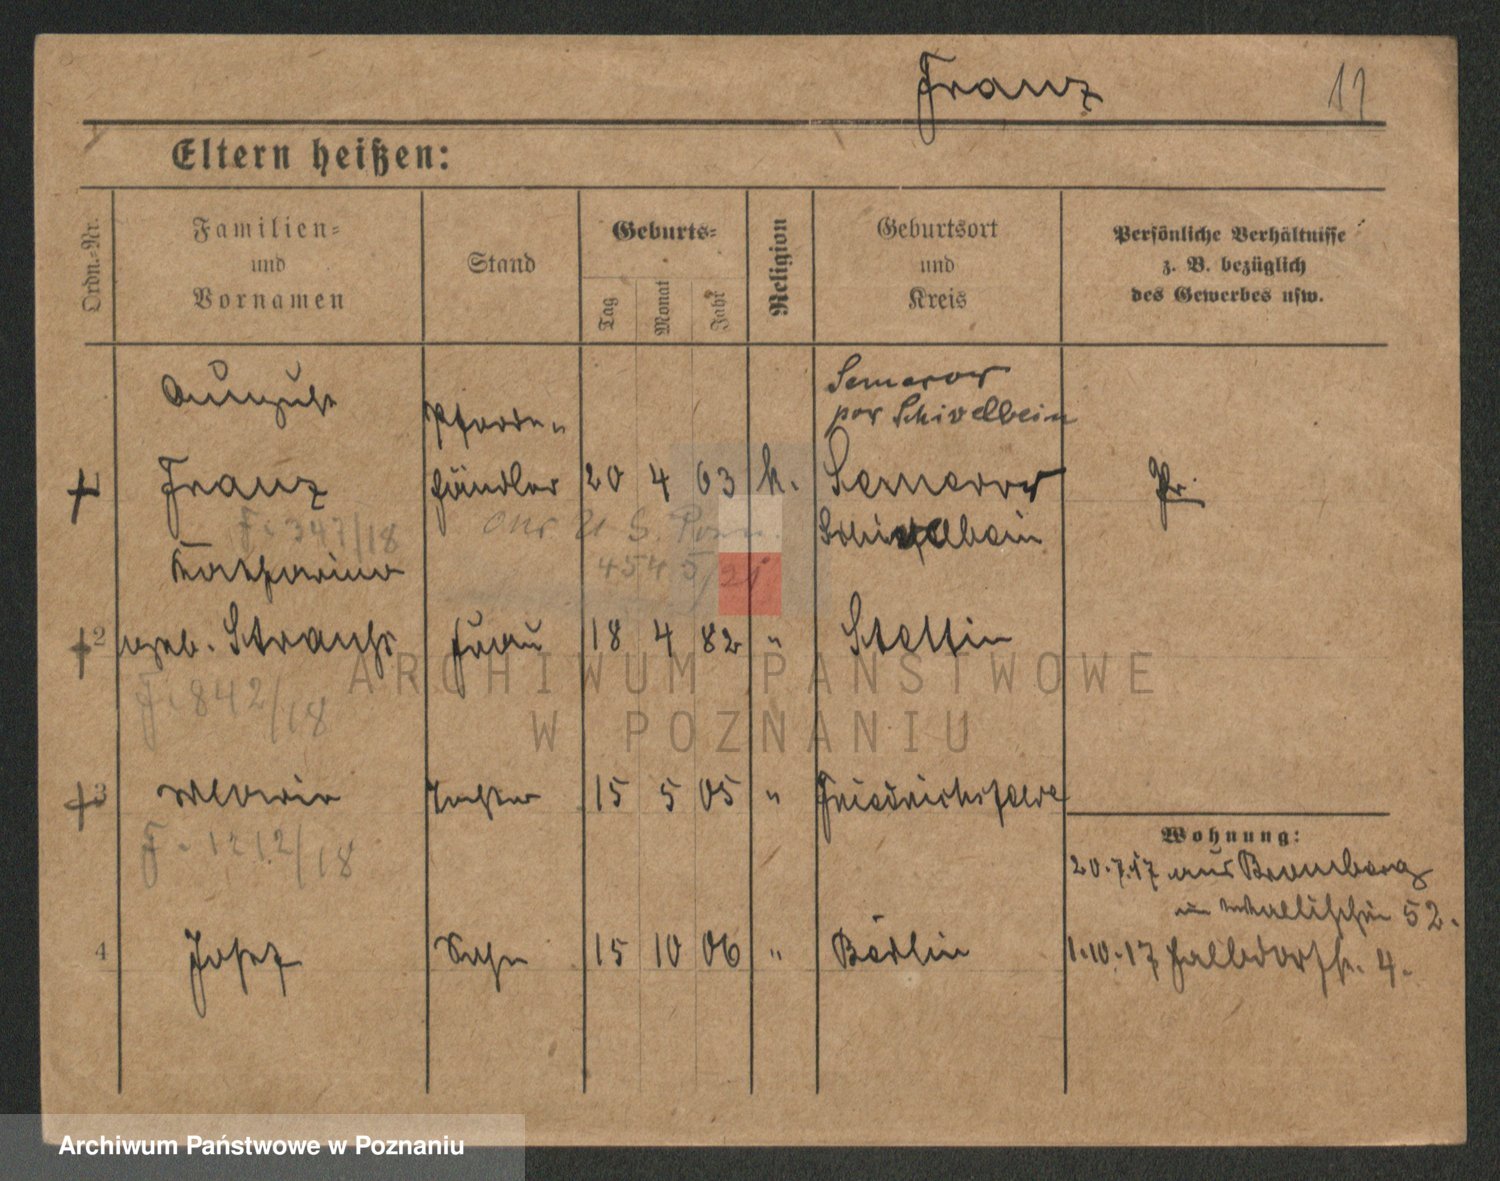 Franz 17
Eltern heißen:
Ordn.-Nr.
Familien-
und
Vornamen
Stand
Geburts-
Tag
Monat
Jahr
Religion
Geburtsort
und
Kreis
Persönliche Verhältnisse
z. B. bezüglich
des Gewerbes usw.
August
Semerow
Schivelbein
Pferde-
1 Franz händler 20 4 63 k. Semerow Pr.
F. 347/18
Schivelbein
Katharina
4545/21
2 geb. Strauchs Frau 18 4 82 " Stettin
F. 842/18
3 Maria Tochter 15 5 05 " Friedrichsfelde
F. 1212/18
Wohnung:
20.7.17 aus Bromberg
Wallischei 52.
4 Josef Sohn 15 10 06 " Berlin
1.10.17 Halbdorfstr. 4.
ARCHIWUM PAŃSTWOWE
W POZNANIU
Archiwum Państwowe w Poznaniu